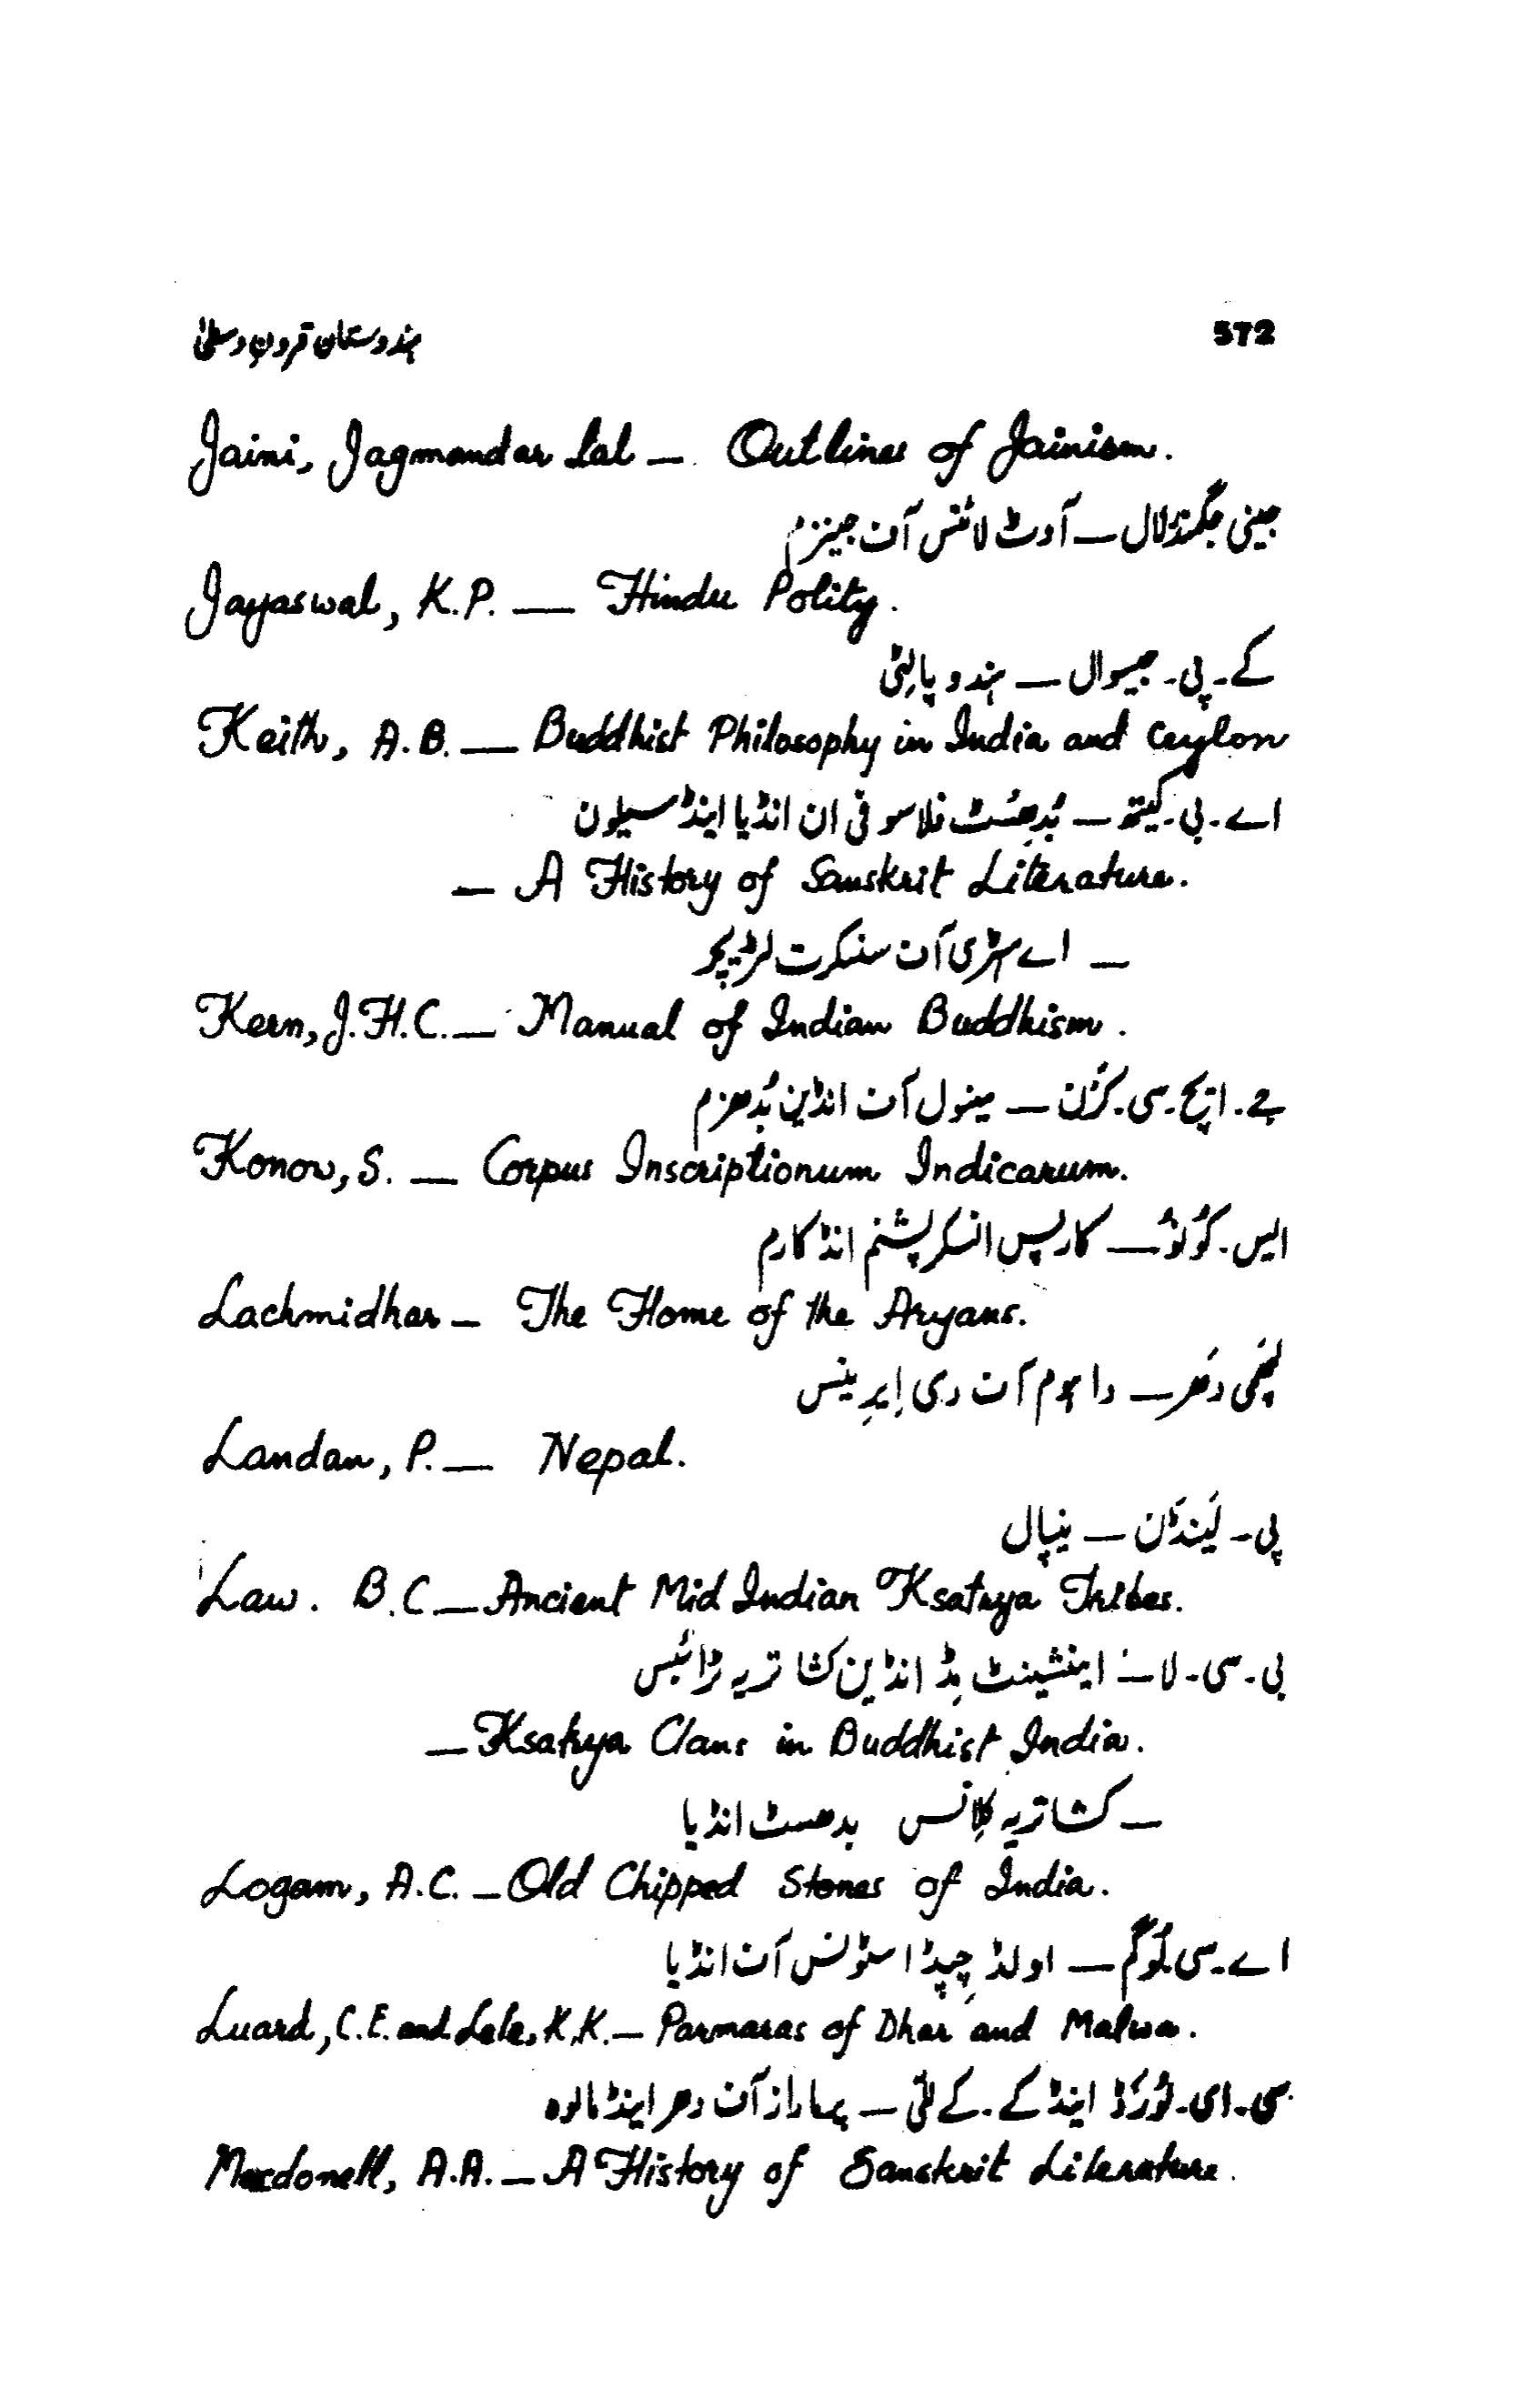 572 ہندوستان قرونِ وسطیٰ
Jaini, Jagmandar Lal — Outlines of Jainism.
جینی جگمندرلال — آوٹ لائنس آف جینزم
Jayaswal, K.P. — Hindu Polity.
کے۔پی۔ جیسوال — ہندو پالِٹی
Keith, A.B. — Buddhist Philosophy in India and Ceylon
اے۔بی۔کیتھ — بُدِھسٹ فلاسوفی ان انڈیا اینڈ سیلون
— A History of Sanskrit Literature.
— اے ہسٹری آف سنسکرت لٹریچر
Kern, J.H.C. — Manual of Indian Buddhism.
جے۔ایچ۔سی۔کَرْن — مینول آف انڈین بُدھزم
Konow, S. — Corpus Inscriptionum Indicarum.
ایس۔کونو — کارپس انسکرپشنم انڈکارم
Lachmidhar — The Home of the Aryans.
لچھمی دَھر — دا ہوم آف دی اِیرِینس
Landan, P. — Nepal.
پی۔ لَینڈَن — نیپال
Law. B.C — Ancient Mid Indian Ksatrya Tribes.
بی۔سی۔لا — اینشینٹ مِڈ انڈین کشاتریہ ٹرائبس
— Ksatrya Clans in Buddhist India.
— کشاتریہ کلانس بدھسٹ انڈیا
Logam, A.C. — Old Chipped Stones of India.
اے۔سی۔لوگم — اولڈ چِپڈ اسٹونس آف انڈیا
Luard, C.E. and Lele, K.K. — Parmaras of Dhar and Malwa.
سی۔ای۔لُورَڈ اینڈ کے۔کے لیلی — پرماراز آف دھر اینڈ مالوہ
Macdonell, A.A. — A History of Sanskrit Literature.